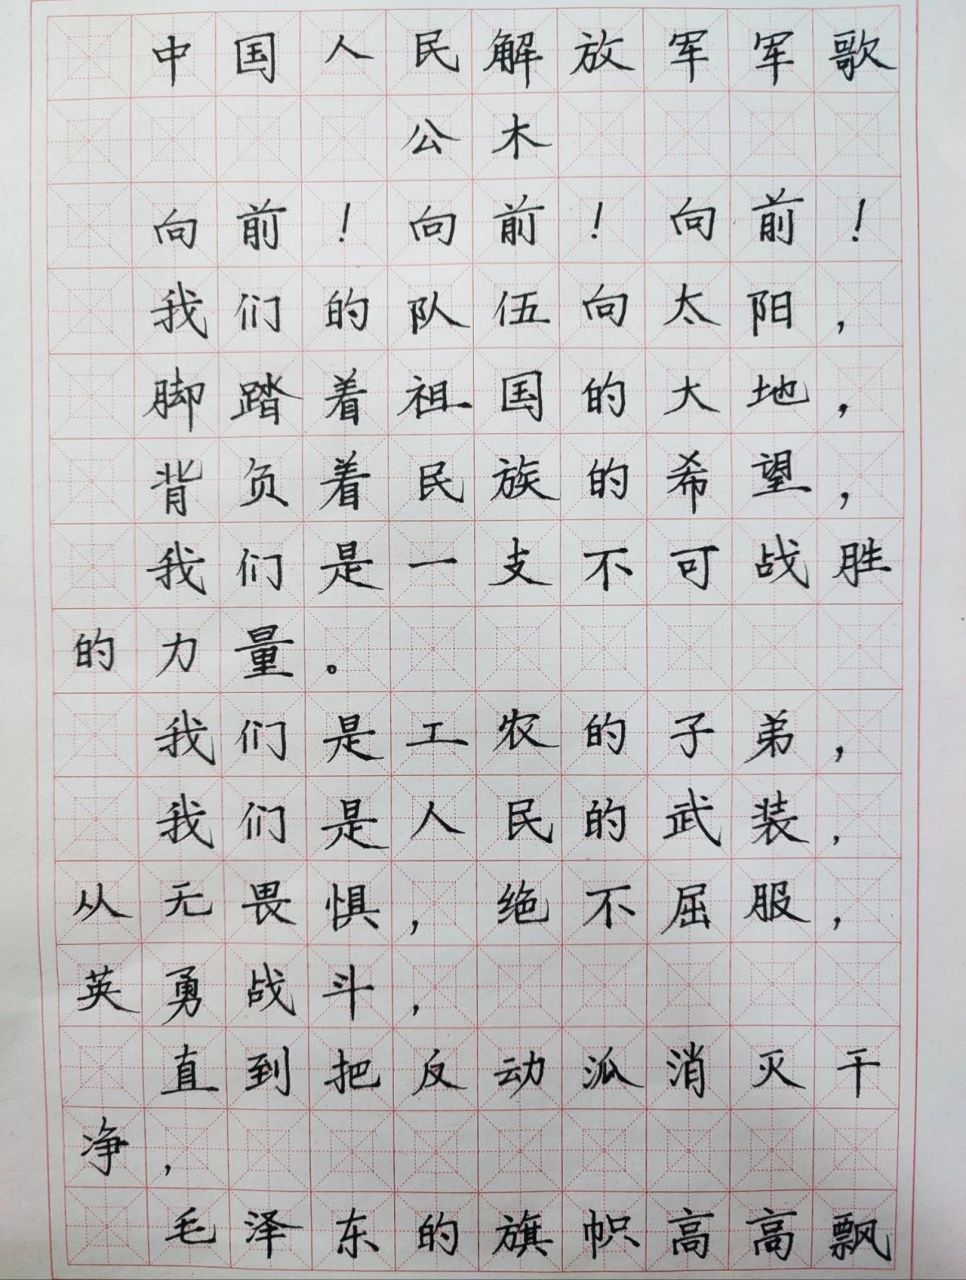 中国人民解放军军歌
公木
向前！向前！向前！
我们的队伍向太阳，
脚踏着祖国的大地，
背负着民族的希望，
我们是一支不可战胜
的力量。
我们是工农的子弟，
我们是人民的武装，
从无畏惧，绝不屈服，
英勇战斗，
直到把反动派消灭干
净，
毛泽东的旗帜高高飘